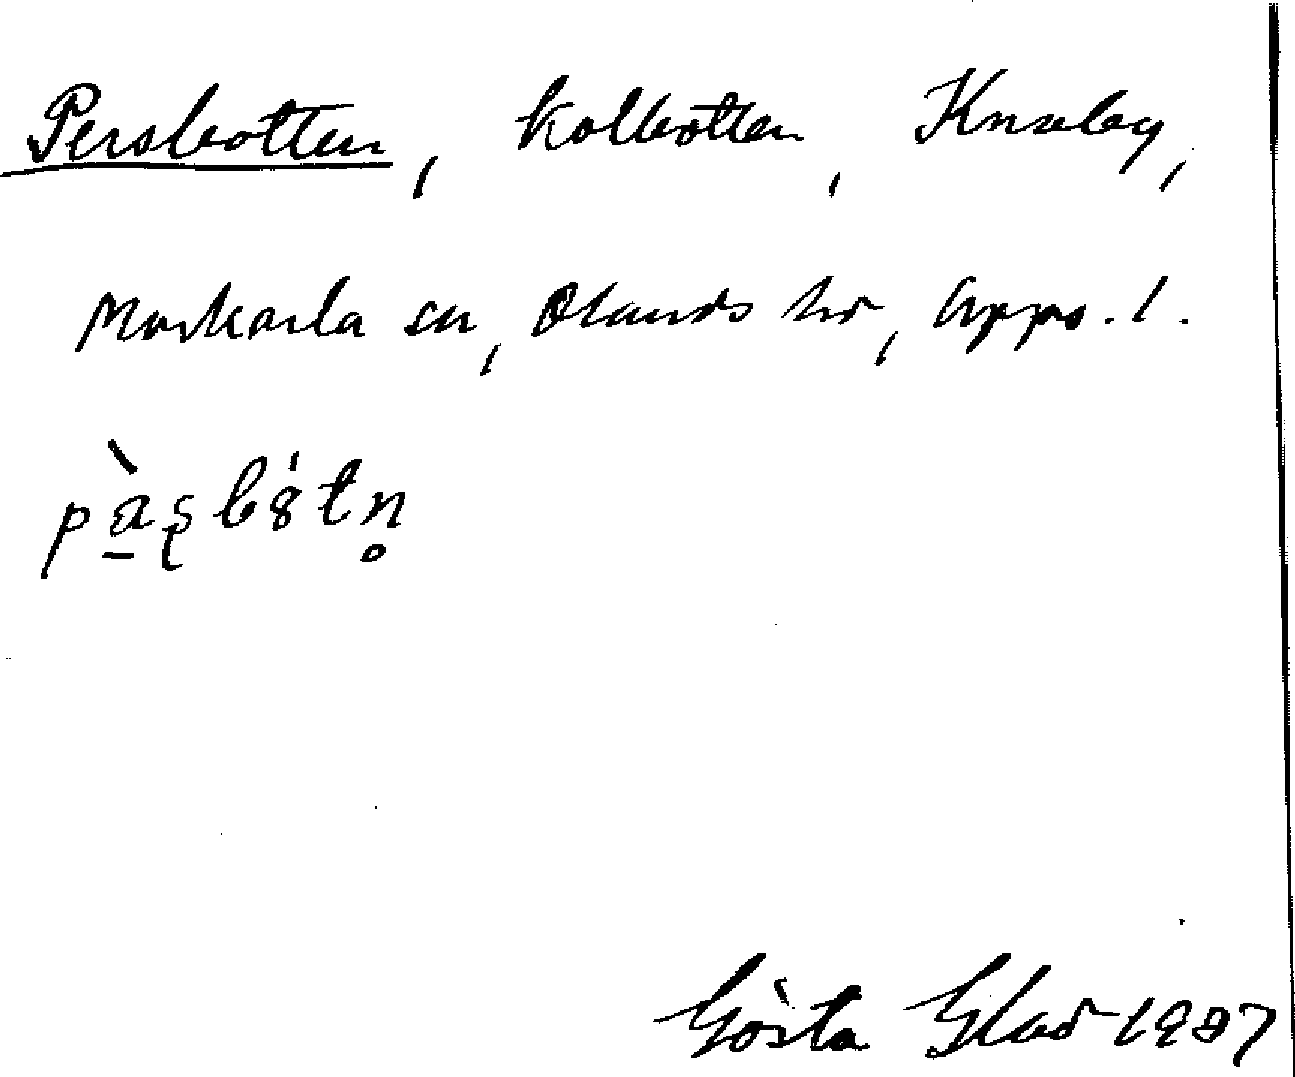 Persbotten, kolbotten, Knaby,
Morkarla sn, Olands hd, Upps. l.
pàʂbótn̥
Gösta Glad 1937